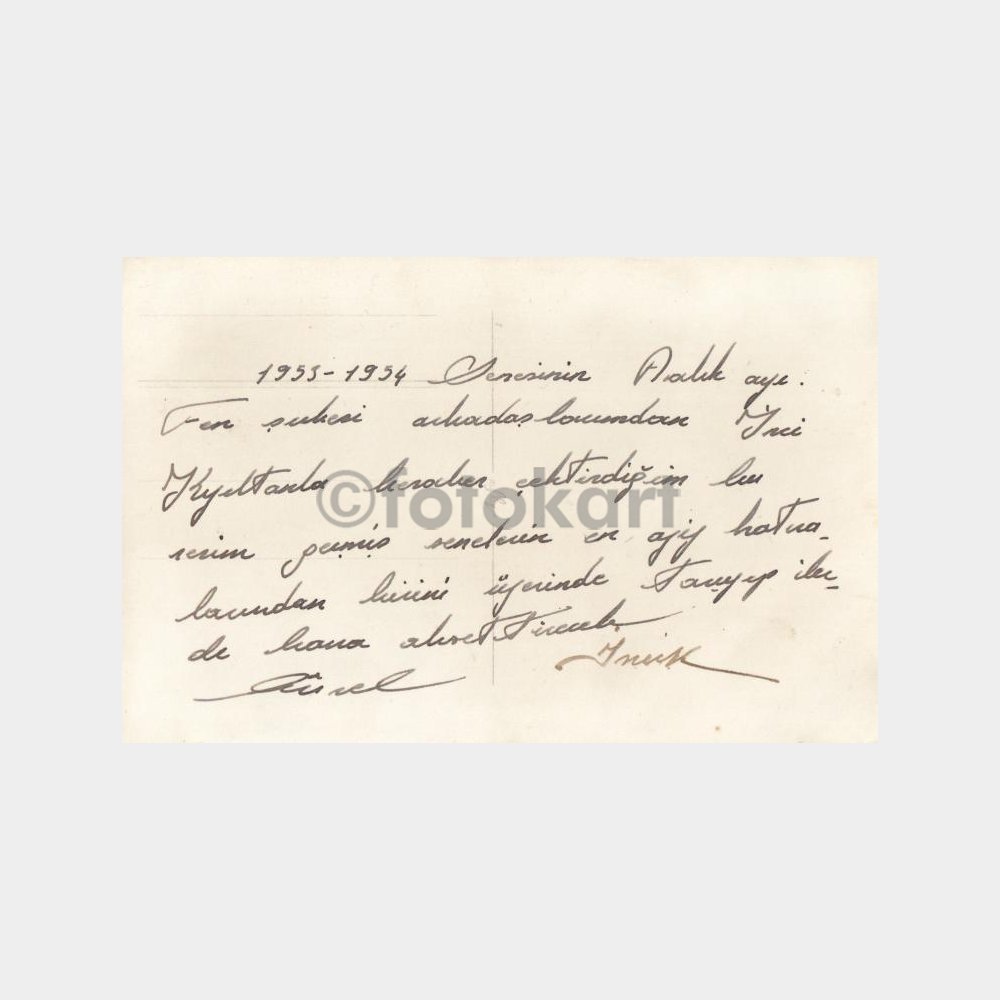 1953-1954 Senesinin Aralık ayı.
Fen şubesi arkadaşlarımdan İnci
beraber çektirdiğim bu
resim geçmiş senelerin en aziz hatıra-
larından birini üzerinde taşıyıp iler-
de bana aksettirecek.
©fotokart